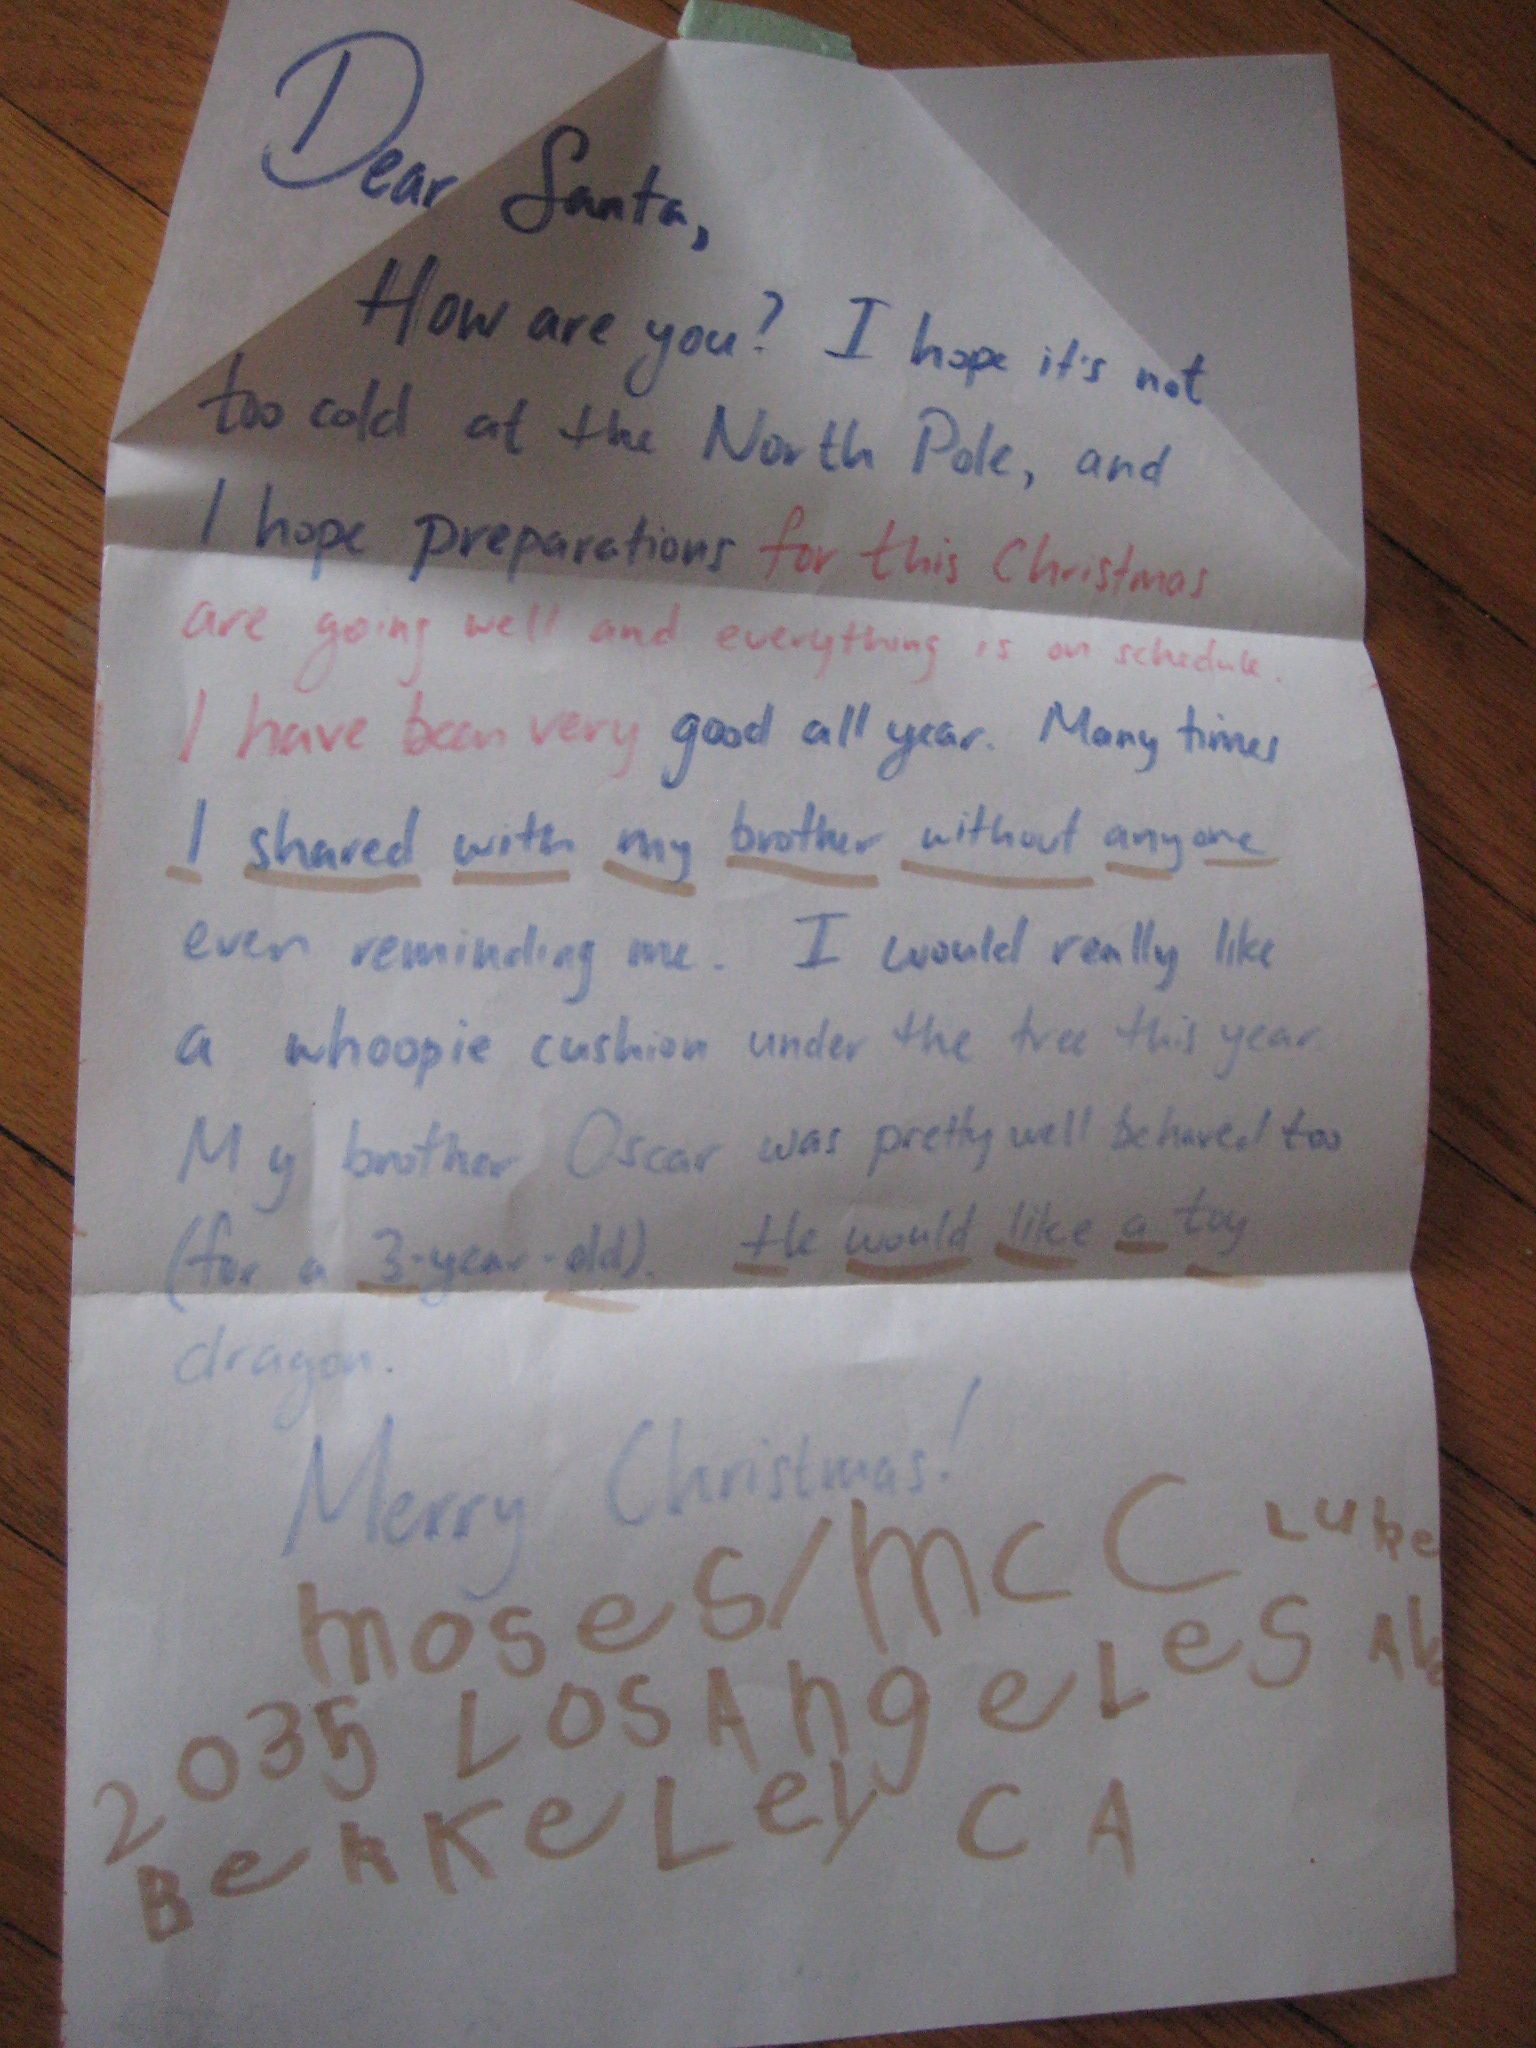 Dear Santa,
How are you? I hope it's not
too cold at the North Pole, and
I hope preparations for this Christmas
are going well and everything is on schedule.
I have been very good all year. Many times
I shared with my brother without anyone
even reminding me. I would really like
a whoopie cushion under the tree this year.
My brother Oscar was pretty well behaved too
(for a 3-year-old). He would like a toy
dragon.
Merry Christmas!
moses/mcC Luke
2035 LosAngeLeS
BerKeLey CA